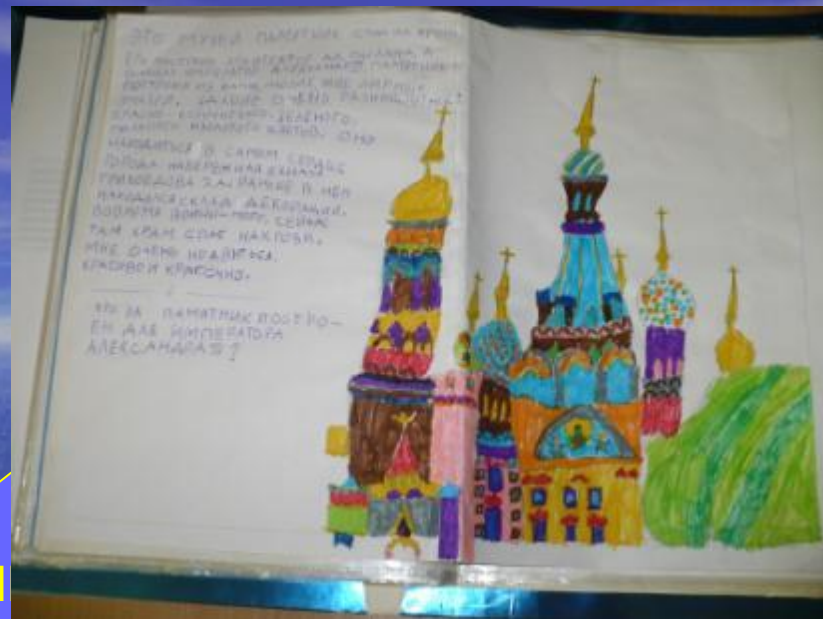 ЭТО МУЗЕЙ ПАМЯТНИК СПАС НА КРОВИ
АЛЕКСАНДР II ПАМЯТНИК
ПОСТРОЕН ИЗ
ЗДАНИЕ ОЧЕНЬ РАЗНОЦВЕТНОЕ
КРАСНО-КОРИЧНЕВО-ЗЕЛЁНОГО,
ЦВЕТОВ. ОНО
НАХОДИТЬСЯ В САМОМ СЕРДЦЕ
ГОРОДА НАБЕРЕЖНАЯ КАНАЛА
ГРИБОЕДОВА 2А. РАНЬШЕ В НЁМ
НАХОДИЛСЯ СКЛАД ДЕКОРАЦИЙ.
ВОВРЕМЯ СЕЙЧАС
ТАМ ХРАМ СПАС НАКРОВИ.
МНЕ ОЧЕНЬ НРАВИТЬСЯ.
КРАСИВО И КРАСОЧНО.
ЧТО ЗА ПАМЯТНИК ПОСТРО-
ЕН ДЛЯ ИМПЕРАТОРА
АЛЕКСАНДРА II ?